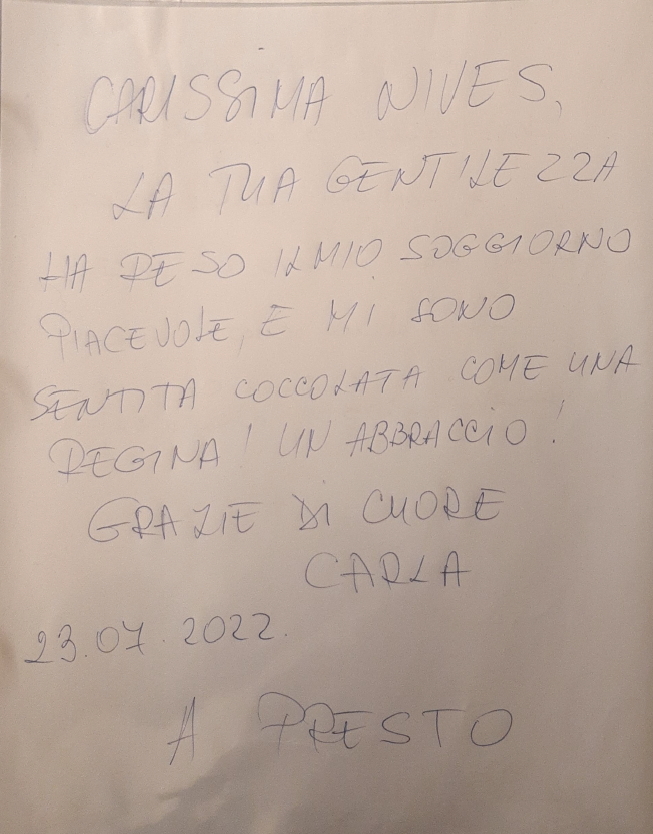 CARISSIMA NIVES,
LA TUA GENTILEZZA
HA RESO IL MIO SOGGIORNO
PIACEVOLE, E MI SONO
SENTITA COCCOLATA COME UNA
REGINA! UN ABBRACCIO!
GRAZIE DI CUORE
CARLA
23.07.2022.
A PRESTO